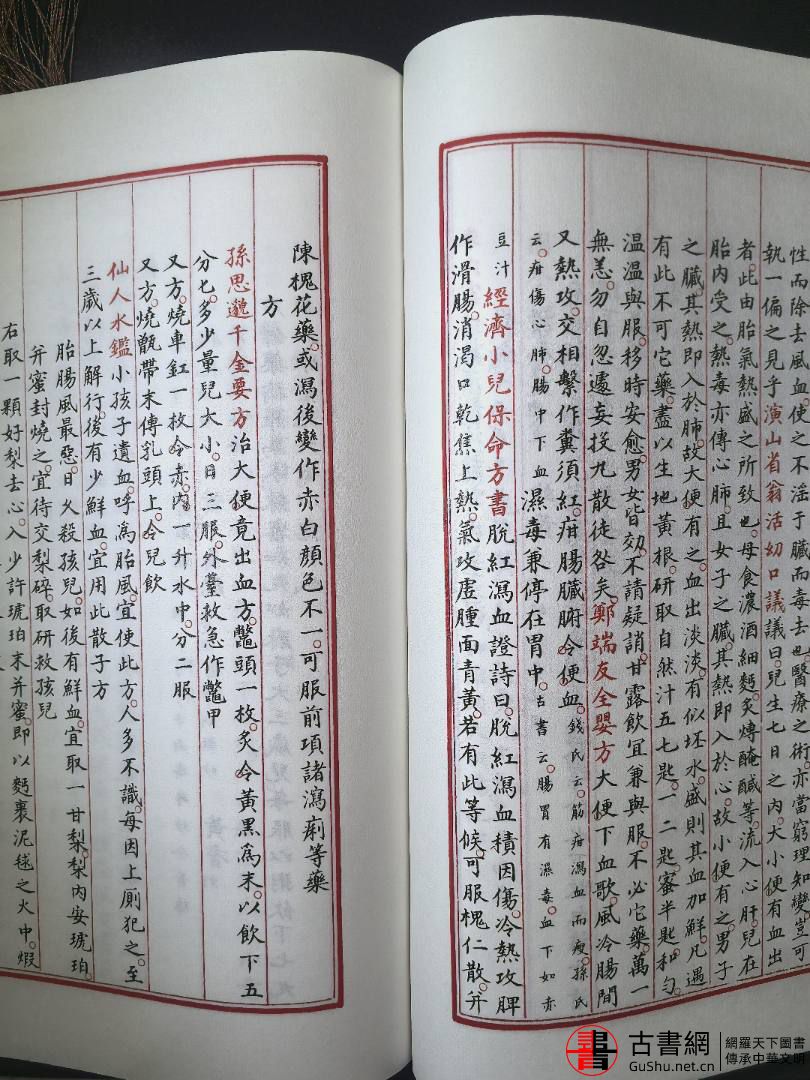 性而除去風血使之不淫于臟而毒去也醫療之術亦當窮理知變豈可
執一偏之見乎演山省翁活幼口議議曰兒生七日之內大小便有血出
者此由胎氣熱盛之所致也母食濃酒細麪炙煿醃鹹等流入心肝兒在
胎內受之熱毒亦傳心肺且女子之臟其熱即入於心故小便有之男子
之臟其熱即入於肺故大便有之血出淡淡有似坯水盛則其血加鮮凡遇
有此不可它藥盡以生地黃根研取自然汁五七匙一二匙蜜半匙和勻
溫溫與服移時安愈男女皆効不請疑誚甘露飲宜兼與服不必它藥萬一
無恙勿自忽遽妄投丸散徒咎矣鄭端友全嬰方大便下血歌風冷腸間
又熱攻交相繫作糞須紅疳腸臟腑令便血錢氏云筋疳瀉血而瘦孫氏
云疳傷心肺腸中下血濕毒兼停在胃中古書云腸胃有濕毒血下如赤
豆汁經濟小兒保命方書脫紅瀉血證詩曰脫紅瀉血積因傷冷熱攻脾
作滑腸消渴口乾焦上熱氣攻虛腫面青黃若有此等候可服槐仁散并
陳槐花藥或瀉後變作赤白顏色不一可服前項諸瀉痢等藥
方
孫思邈千金要方治大便竟出血方鼈頭一枚炙令黃黑爲末以飲下五
分匕多少量兒大小日三服外臺救急作鼈甲
又方燒車釭一枚令赤內一升水中分二服
又方燒甑帶末傅乳頭上令兒飲
仙人水鑑小孩子遺血呼爲胎風宜使此方人多不識每因上厠犯之至
三歲以上解行後有少鮮血宜用此散子方
胎腸風最惡日久殺孩兒如後有鮮血宜取一甘梨梨內安琥珀
并蜜封燒之宜待交梨碎取研救孩兒
右取一顆好梨去心入少許琥珀末并蜜即以麪裹泥毬之火中煆
古書網
GuShu.net.cn
網羅天下圖書
傳承中華文明